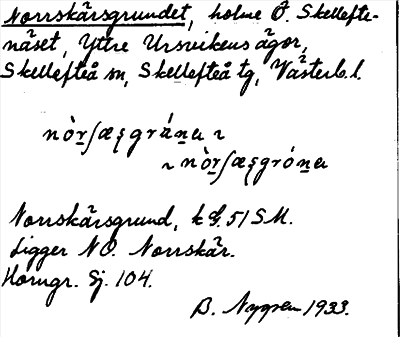 Norrskärsgrundet, holme Ö. Skellefte-
näset, Yttre Ursvikens ägor,
Skellefteå sn, Skellefteå tg, Västerb. l.
nòr̲ʃæʂgrán̲a ~
~ nòr̲ʃæʂgrón̲a
Norrskärsgrund, k 51 SM.
Ligger NO. Norrskär.
Horngr. Sj. 104.
B. Nygren 1933.